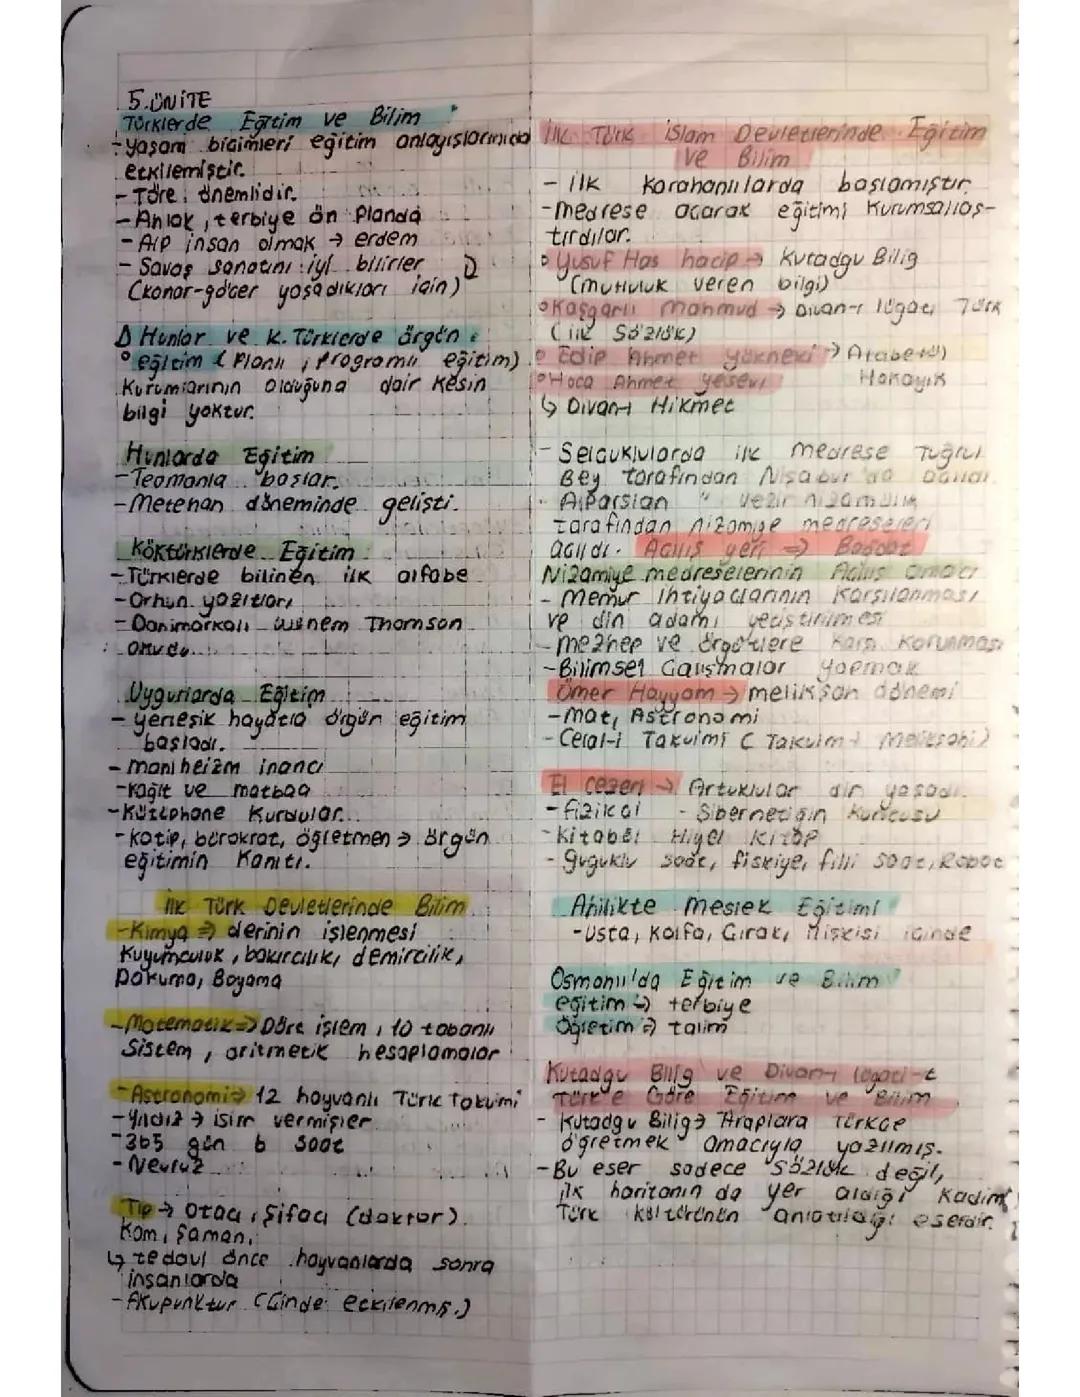 5.ÜNİTE
Türklerde Eğitim ve Bilim
-Yaşam biçimleri eğitim anlayışlarınıda
etkilemiştir.
-Töre önemlidir.
-Ahlak, terbiye ön planda
-Alp insan olmak → erdem
-Savaş sanatını iyi bilirler
(konar-göçer yaşadıkları için)
Δ Hunlar ve K. Türklerde örgün
eğitim (Planlı, programlı eğitim)
Kurumlarının olduğuna dair Kesin
bilgi yoktur.
Hunlarda Eğitim
-Teomanla başlar.
-Metehan döneminde gelişti.
Köktürklerde Eğitim
-Türklerde bilinen ilk alfabe
-Orhun yazıtları
-Danimarkalı Thomson
okudu.
Uygurlarda Eğitim
- yerleşik hayatla örgün eğitim
başladı.
- maniheizm inancı
-kağıt ve matbaa
-Kütüphane Kurdular.
-katip, bürokrat, öğretmen → örgün
eğitimin Kanıtı.
İlk Türk Devletlerinde Bilim
-Kimya ⇒ derinin işlenmesi
Kuyumculuk, bakırcılık, demircilik,
Dokuma, Boyama
-Matematik ⇒ Dört işlem, 10 tabanlı
Sistem, aritmetik hesaplamalar
-Astronomi → 12 hayvanlı Türk Takvimi
-Yıldız → isim vermişler
-365 gün 6 saat
-Nevruz
Tıp → Otacı, Şifacı (doktor)
Kam, Şaman,
↳ tedavi önce hayvanlarda sonra
insanlarda
-Akupunktur (Çinde etkilenmiş.)
İlk Türk İslam Devletlerinde Eğitim
ve Bilim
- ilk Karahanlılarda başlamıştır.
-medrese açarak eğitimi Kurumsallaş-
tırdılar.
° Yusuf Has hacip → Kutadgu Bilig
(mutluluk veren bilgi)
° Kaşgarlı mahmud → Divan-ı lügati Türk
(ilk Sözlük)
° Edip Ahmet yükneki → Atabetül
Hakayık
° Hoca Ahmet Yesevi
↳ Divan-ı Hikmet
- Selçuklularda ilk medrese Tuğrul
Bey tarafından Nişabur'da
- Alparslan " veziri nizamülmülk
tarafından nizamiye medreseleri
açıldı. Açılış yeri ⇒ Bağdat
Nizamiye medreselerinin Açılış amacı
- memur ihtiyaçlarının Karşılanması
ve din adamı yetiştirilmesi
-mezhep ve örgütlere karşı Korunması
-Bilimsel Çalışmalar yapmak
Ömer Hayyam → melikşah dönemi
-mat, Astronomi
-Celal-i Takvimi ( Takvim-i Melikşahi)
El cezeri → Artuklular dn yaşadı.
-fizikçi - Sibernetiğin Kurucusu
-kitabül Hiyel Kitap
-guguklu saat, fiskiye, filli saat, Robot
Ahilikte meslek Eğitimi
-Usta, Kalfa, Çırak, ilişkisi içinde
Osmanlı'da Eğitim ve Bilim
eğitim ↳ terbiye
Öğretim → talim
Kutadgu Bilig ve Divan-ı lügati-t
Türk'e Göre Eğitim ve Bilim
- Kutadgu Bilig → Araplara Türkçe
öğretmek amacıyla yazılmış.
-Bu eser sadece sözlük değil,
ilk haritanın da yer aldığı Kadim
Türk kültürünün anlatıldığı eserdir.